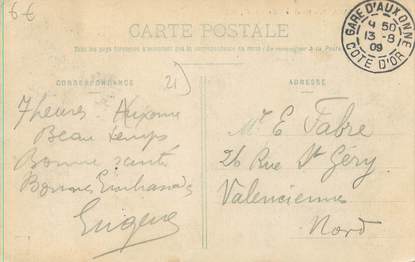 6€
CARTE POSTALE
Tous les pays étrangers n'acceptent pas la correspondance au recto (Se renseigner à la Poste)
GARE D'AUXONNE
4 50
13 - 8
09
COTE D'OR
CORRESPONDANCE
21
ADRESSE
7 heures Auxonne
Beau temps
Bonne santé
Bonnes Embrassades
Eugène
Mr E Fabre
26 Rue St Géry
Valenciennes
Nord